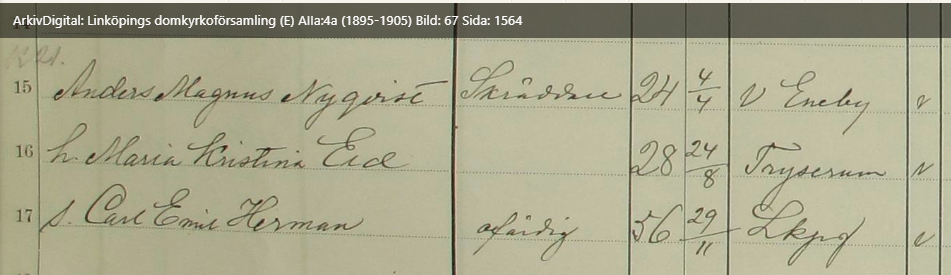 ArkivDigital: Linköpings domkyrkoförsamling (E) AIIa:4a (1895-1905) Bild: 67 Sida: 1564
15 Anders Magnus Nyqvist Skräddare 24 4/4 V Eneby v
16 h. Maria Kristina Eed 28 24/8 Tryserum v
17 s. Carl Emil Herman ofärdig 56 29/11 Lkpg v